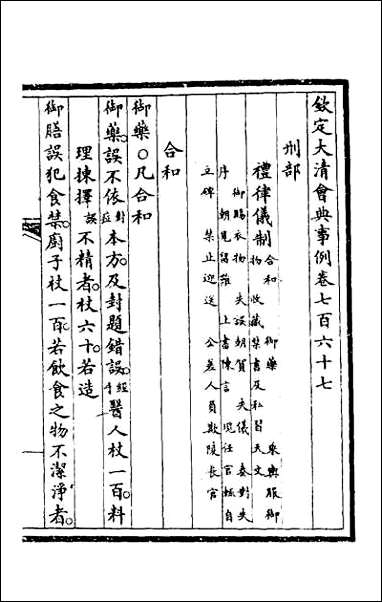 欽定大清會典事例卷七百六十七
刑部
禮律儀制 合和 御藥 乘輿服御
物 收藏禁書及私習天文
御賜衣物 失誤朝賀 失儀 奏對失
序 朝見留難 上書陳言 現任官輒自
立碑 禁止迎送 公差人員欺陵長官
合和
御藥○凡合和
御藥。誤不依對症本方。及封題錯誤。經手醫人杖一百。料
理揀擇誤不精者。杖六十。若造
御膳誤犯食禁。廚子杖一百。若飲食之物不潔淨者。